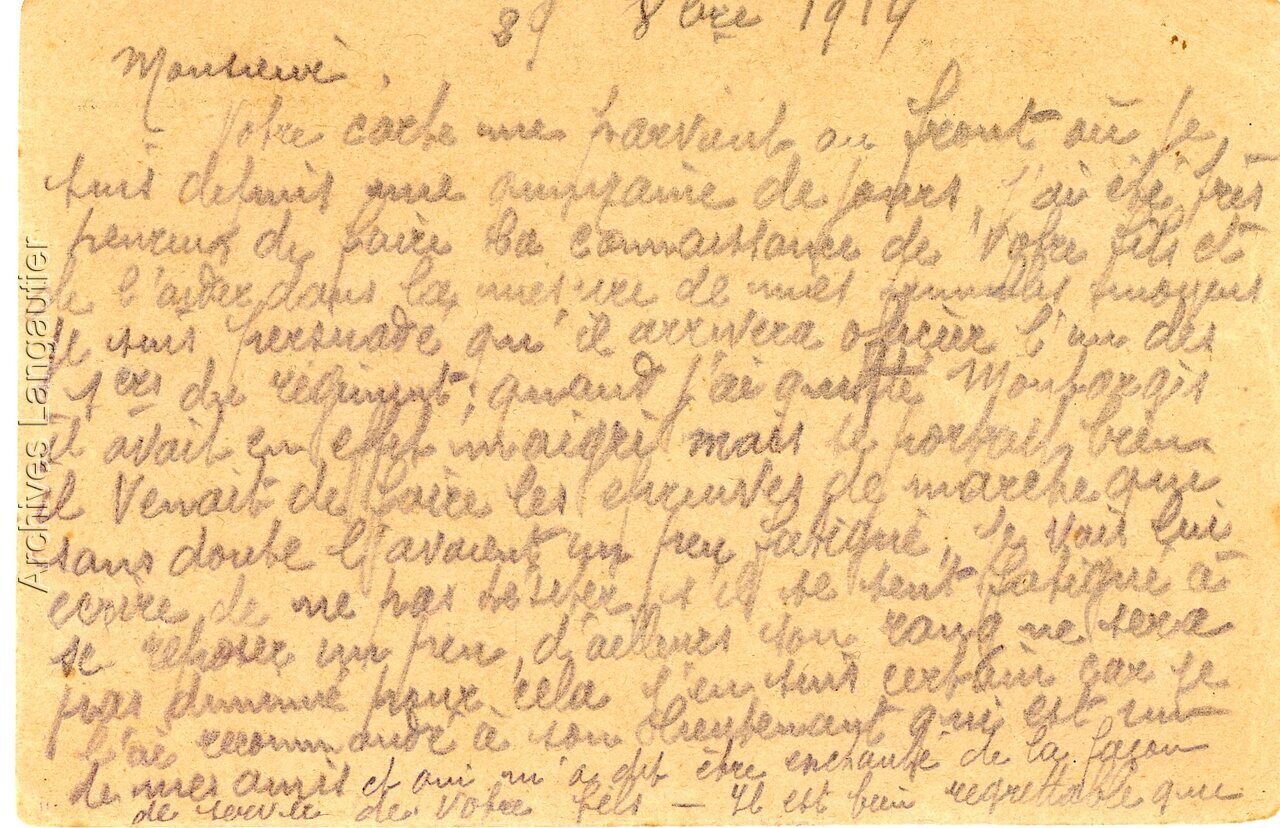 8bre 1914
Monsieur,
Votre carte me parvient au front où je
suis depuis une quinzaine de jours, j'ai été très
heureux de faire la connaissance de votre fils et
de l'aider dans la mesure de mes humbles moyens
Je suis persuadé qu'il arrivera officier l'un des
1ers du régiment; quand j'ai quitté Montargis
il avait en effet maigri mais se portait bien
il venait de faire les épreuves de marche qui
sans doute l'avaient un peu fatigué, je vais lui
écrire de ne pas hésiter s'il se sent fatigué à
se reposer un peu, d'ailleurs son rang ne sera
pas diminué pour cela j'en suis certain car je
l'ai recommandé à son lieutenant qui est un
de mes amis et qui m'a dit être enchanté de la façon
de servir de votre fils — Il est bien regrettable que
Archives Langautier